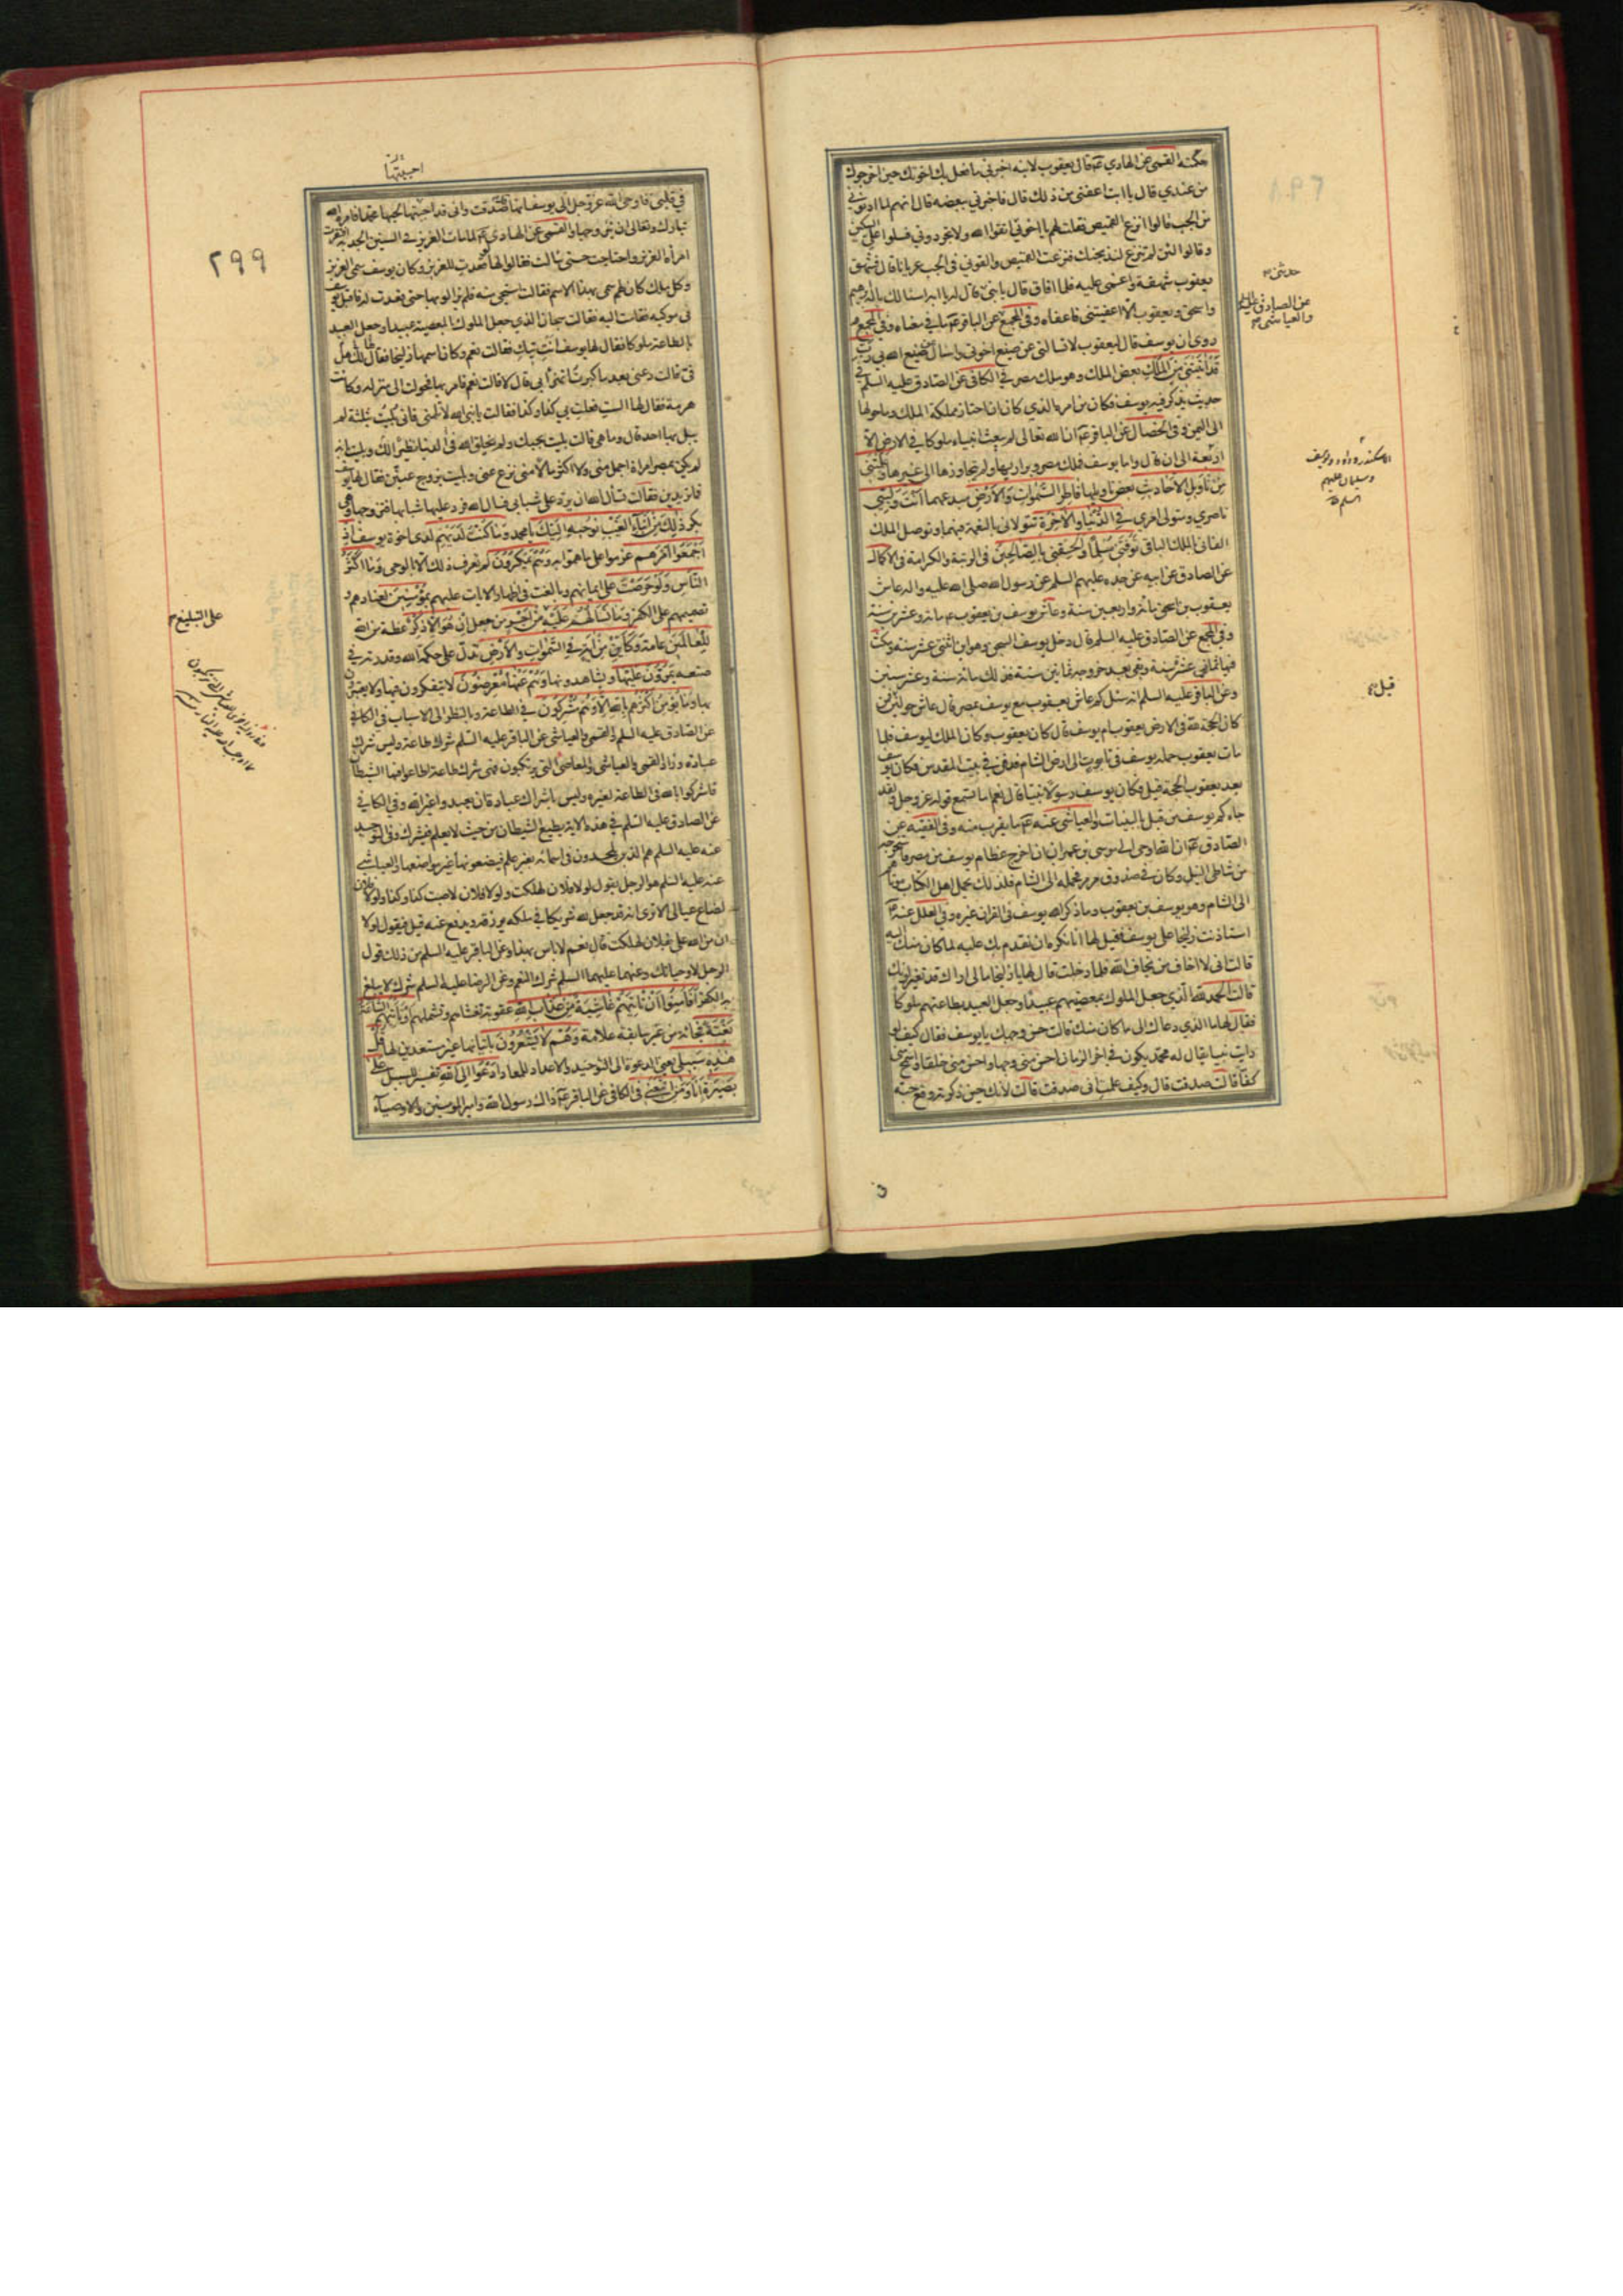 حكته القمي عن الهادي عم قال يعقوب لابنه اخبرني ما فعل بك اخوتك حين اخرجوك
من عندي قال يا ابت اعفني من ذلك قال فاخبرني ببعضه قال انهم لما ادنوني
من الجب قالوا انزع القميص فقلت لهم يا اخوتي اتقوا الله ولا تجردوني فسلوا علي السكين
وقالوا لئن لم تنزع لنذبحنك فنزعت القميص والقوني في الجب عريانا قال فشهق
يعقوب شهقة واغشى عليه فلما افاق قال يا بني حدثني قال يا ابه اسالك باله ابرهيم
واسحق ويعقوب الا اعفيتني فاعفاه وفي المجمع عن الباقر عم ما في معناه وفي المجمع
روى ان يوسف قال ليعقوب لا تسالني عن صنيع اخوتي واسال عن صنيع الله بي رب
قد اتيتني من الملك بعض الملك وهو ملك مصر في الكافي عن الصادق عليه السلم في
حديث يذكر فيه يوسف فكان من امره الذي كان ان اختار مملكة الملك وما حولها
الى اليمن وفي الخصال عن الباقر عم ان الله تعالى لم يبعث انبياء ملوكا في الارض الا
اربعة الى ان قال واما يوسف فملك مصر وبراريها ولم يتجاوزها الى غيرها وعلمتني
من تاويل الاحاديث بعض تاويلها فاطر السموات والارض مبدعهما انت وليي
ناصري ومتولي امري في الدنيا والاخرة تتولاني بالنعمة فيهما وتوصل الملك
الفاني بالملك الباقي توفني مسلما والحقني بالصالحين في الرتبة والكرامة في الاكمال
عن الصادق عن ابيه عن جده عليهم السلم عن رسول الله صلى الله عليه واله عاش
يعقوب بن اسحق مائة واربعين سنة وعاش يوسف بن يعقوب عم مائة وعشرين سنة
وفي المجمع عن الصادق عليه السلم قال دخل يوسف السجن وهو ابن اثنتي عشرة سنة ومكث
فيها ثماني عشرة سنة وبقي بعد خروجه ثمانين سنة فذلك مائة سنة وعشر سنين
وعن الباقر عليه السلم انه سئل كم عاش يعقوب مع يوسف بمصر قال عاش حولين قيل فمن
كان الحجة لله في الارض يعقوب ام يوسف قال كان يعقوب وكان الملك ليوسف فلما
مات يعقوب حمله يوسف في تابوت الى ارض الشام فدفنه في بيت المقدس فكان يوسف
بعد يعقوب الحجة قيل فكان يوسف رسولا نبيا قال نعم اما تسمع قوله عز وجل ولقد
جاءكم يوسف من قبل بالبينات والعياشي عنه عم ما يقرب منه وفي الفقيه عن
الصادق عم ان الله اوحى الى موسى بن عمران ان اخرج عظام يوسف من مصر فاستخرجه
من شاطئ النيل وكان في صندوق مرمر فحمله الى الشام فلذلك يحمل اهل الكتاب موتاهم
الى الشام وهو يوسف بن يعقوب وما ذكر الله يوسف في القران غيره وفي العلل عنه عم
استاذنت زليخا على يوسف فقيل لها انا نكره ان نقدم بك عليه لما كان منك اليه
قالت اني لا اخاف من يخاف الله فلما دخلت قال لها يا زليخا ما لي اراك قد تغير لونك
قالت الحمد لله الذي جعل الملوك بمعصيتهم عبيدا وجعل العبيد بطاعتهم ملوكا
فقال لها ما الذي دعاك الى ما كان منك قالت حسن وجهك يا يوسف فقال كيف لو
رايت نبيا يقال له محمد يكون في اخر الزمان احسن مني وجها واحسن مني خلقا واسخى مني
كفا قالت صدقت قال وكيف علمت اني صدقت قالت لانك حين ذكرته وقع حبه
حدثني
عن الصادق عليه السلم
والعياشي
الاسكندر وداود ويوسف
وسليمان عليهم
السلم
قبل
احببتها
٢٩٩
في قلبي فاوحى الله عز وجل الى يوسف انها قد صدقت واني قد احببتها لحبها محمدا فامره الله
تبارك وتعالى ان يتزوجها والقمي عن الهادي عم لما مات العزيز في السنين الجدبة افتقرت
امراة العزيز واحتاجت حتى سالت فقالوا لها لو قعدت للعزيز وكان يوسف سمي العزيز
وكل ملك كان لهم سمي بهذا الاسم فقالت استحيي منه فلم يزالوا بها حتى قعدت له فاقبل يوسف
في موكبه فقامت اليه فقالت سبحان الذي جعل الملوك بالمعصية عبيدا وجعل العبيد
بالطاعة ملوكا فقال لها يوسف انت تيك فقالت نعم وكان اسمها زليخا فقال لها هل لك
في قالت دعني بعد ما كبرت اتهزا بي قال لا قالت نعم فامر بها فحولت الى منزله وكانت
هرمة فقال لها الست فعلت بي كذا وكذا فقالت يا نبي الله لا تلمني فاني بليت بثلثة لم
يبل بها احد قال وما هي قالت بليت بحبك ولم يخلق الله في الدنيا نظيرا لك وبليت بانه
لم يكن بمصر امراة اجمل مني ولا اكثر مالا مني نزع عني وبليت بزوج عنين فقال لها يوسف
فما تريدين فقالت تسال الله ان يرد علي شبابي فسال الله فرد عليها شبابها فتزوجها وهي
بكر ذلك من انباء الغيب نوحيه اليك يا محمد وما كنت لديهم لدى اخوة يوسف اذ
اجمعوا امرهم عزموا على ما هموا به وهم يمكرون لم تعرف ذلك الا بالوحي وما اكثر
الناس ولو حرصت على ايمانهم وبالغت في اظهار الايات عليهم بمؤمنين لعنادهم و
تصميمهم على الكفر وما تسالهم عليه من اجر من جعل ان هو الا ذكر عظة من الله
للعالمين عامة وكاين من اية في السموات والارض تدل على حكمة الله وقدرته في
صنعه يمرون عليها ويشاهدونها وهم عنها معرضون لا يتفكرون فيها ولا يعتبرون
بها وما يؤمن اكثرهم بالله الا وهم مشركون في الطاعة وبالنظر الى الاسباب في الكافي
عن الصادق عليه السلم والقمي والعياشي عن الباقر عليه السلم شرك طاعة وليس شرك
عبادة وزاد القمي والعياشي والمعاصي التي يرتكبون فهي شرك طاعة اطاعوا فيها الشيطان
فاشركوا بالله في الطاعة لغيره وليس باشراك عبادة ان يعبدوا غير الله وفي الكافي
عن الصادق عليه السلم في هذه الاية يطيع الشيطان من حيث لا يعلم فيشرك وفي التوحيد
عنه عليه السلم هم الذين يلحدون في اسمائه بغير علم فيضعونها غير مواضعها والعياشي
عنه عليه السلم هو الرجل يقول لولا فلان لهلكت ولولا فلان لاصبت كذا وكذا ولولا فلان
لضاع عيالي الا ترى انه قد جعل لله شريكا في ملكه يرزقه ويدفع عنه قيل فيقول لولا
ان من الله علي بفلان لهلكت قال نعم لا باس بهذا وعن الباقر عليه السلم من ذلك قول
الرجل لا وحياتك وعنهما عليهما السلم شرك النعم وعن الرضا عليه السلم شرك لا يبلغ
به الكفر افامنوا ان تاتيهم غاشية من عذاب الله عقوبة تغشاهم وتشملهم او تاتيهم الساعة
بغتة فجاة من غير سابقة علامة وهم لا يشعرون باتيانها غير مستعدين لها قل
هذه سبيلي يعني الدعوة الى التوحيد والاعداد للمعاد ادعوا الى الله تفسير للسبيل على
بصيرة انا ومن اتبعني في الكافي عن الباقر عم ذاك رسول الله وامير المؤمنين والاوصياء
على التبليغ